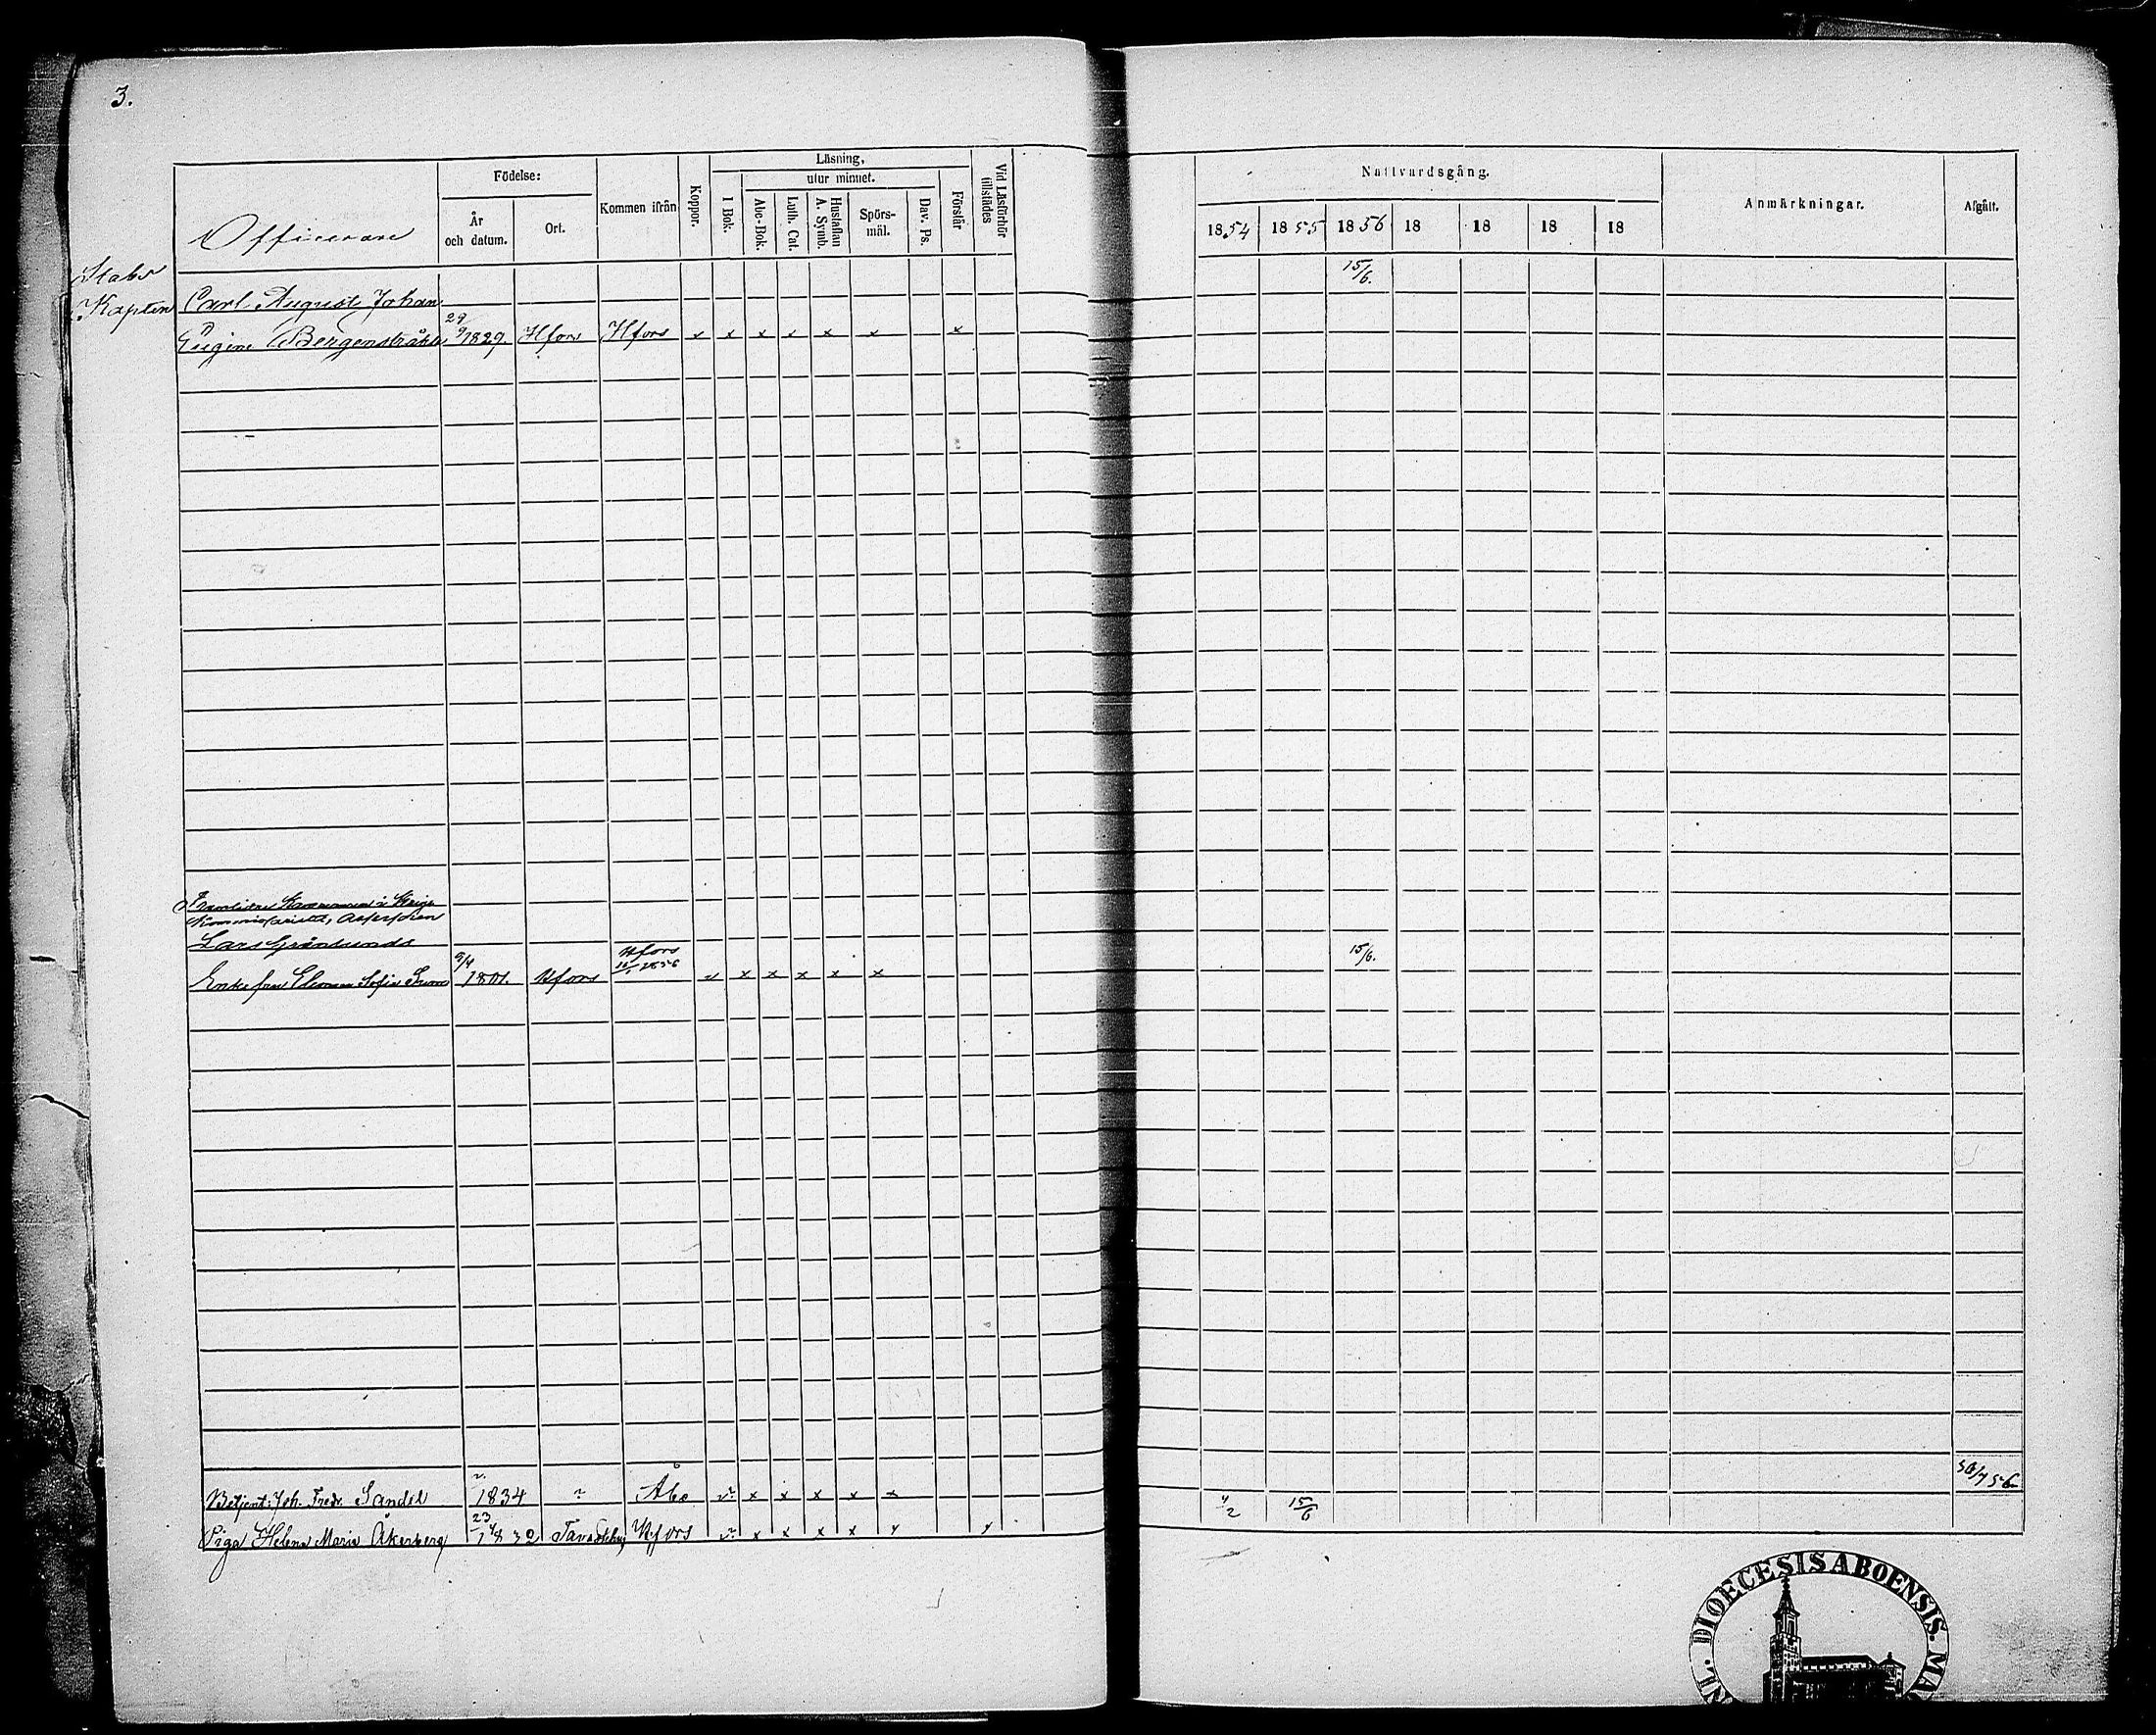 3.
Officerare
Födelse:
År och datum.
Ort.
Kommen ifrån
Koppor.
Läsning,
utur minnet.
I Bok.
Abc-Bok.
Luth. Cat.
Hustaflan A. Symb.
Spörs-mål.
Dav. Ps.
Förstår
Vid Läsförhör tillstädes
Nattvardsgång.
1854 1855 1856 18 18 18 18
Anmärkningar.
Afgått.
Stabs
Kapten Carl August Johan 15/6.
Eugine Bergenstråhle 29/9 1829. Hfors Hfors
Kommissariatet,
Lars Grönlunds
Enkefru Sofia 9/4 1801. Hfors Hfors 1856 15/6.
Betjent: Joh. Fredr. Sandel 1834 ? Åbo 4/2 15/6 56
Piga Helena Maria Åkerberg 23/4 1832 Tavastehus Hfors
DIOECESIS ABOENSIS.